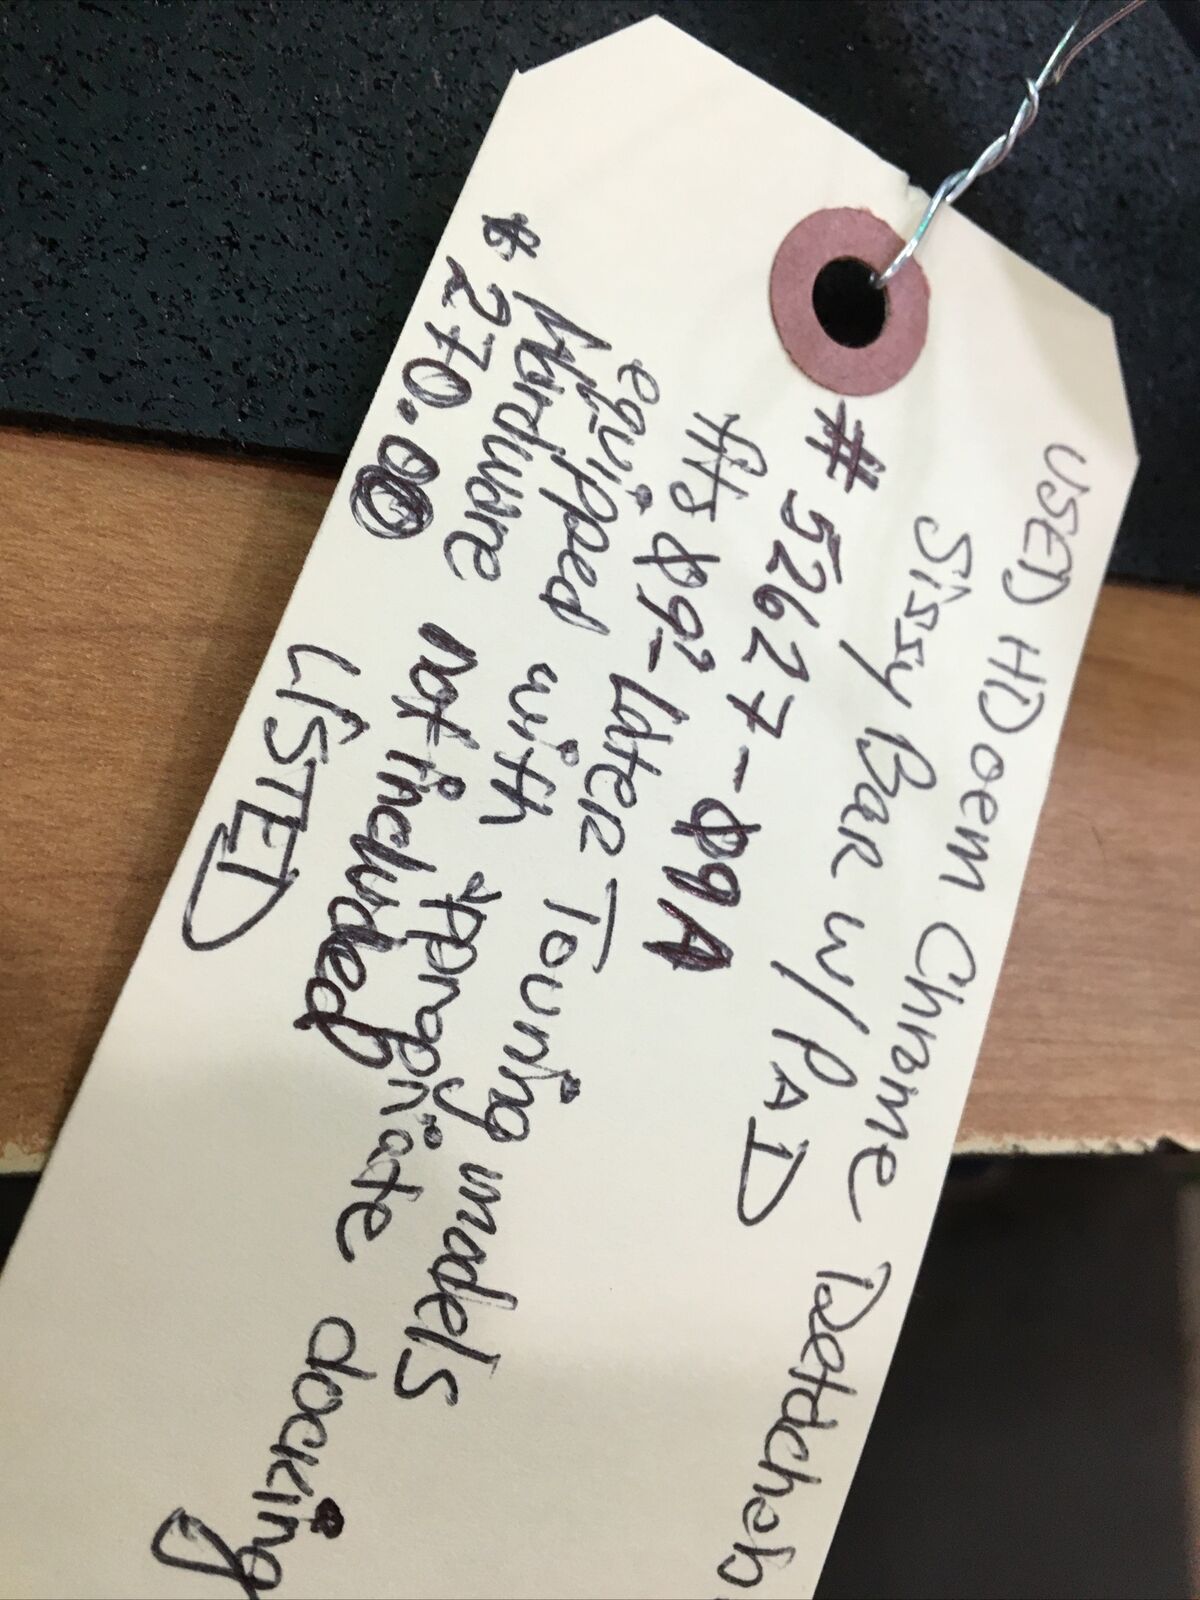 USED HD oem Chrome Detachab
Sissy Bar w/ PAD
# 52627-09A
fits 09'-later Touring models
equipped with appropriate docking
Hardware not included
$270.00 LISTED